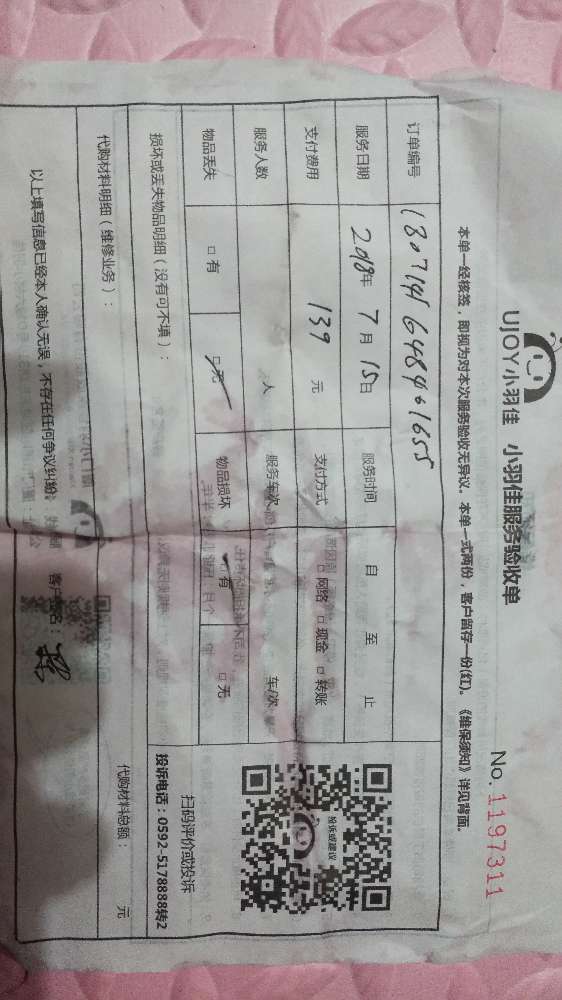 UJOY小羽佳 小羽佳服务验收单
No. 1197311
本单一经核签，即视为对本次服务验收无异议。本单一式两份，客户留存一份(红)。《维保须知》详见背面。
订单编号
服务日期 2018年 7月 15日 服务时间 自 至 止
支付费用 139 元 支付方式 □网络 □现金 □转账
服务人数 人 服务车次 车/次
物品丢失 □有 □无 物品损坏 □有 □无
投诉或建议
扫码评价或投诉
投诉电话：0592-5178888转2
损坏或丢失物品明细（没有可不填）：
代购材料明细（维修业务）： 代购材料总额： 元
以上填写信息已经本人确认无误，不存在任何争议纠纷。 客户签名：